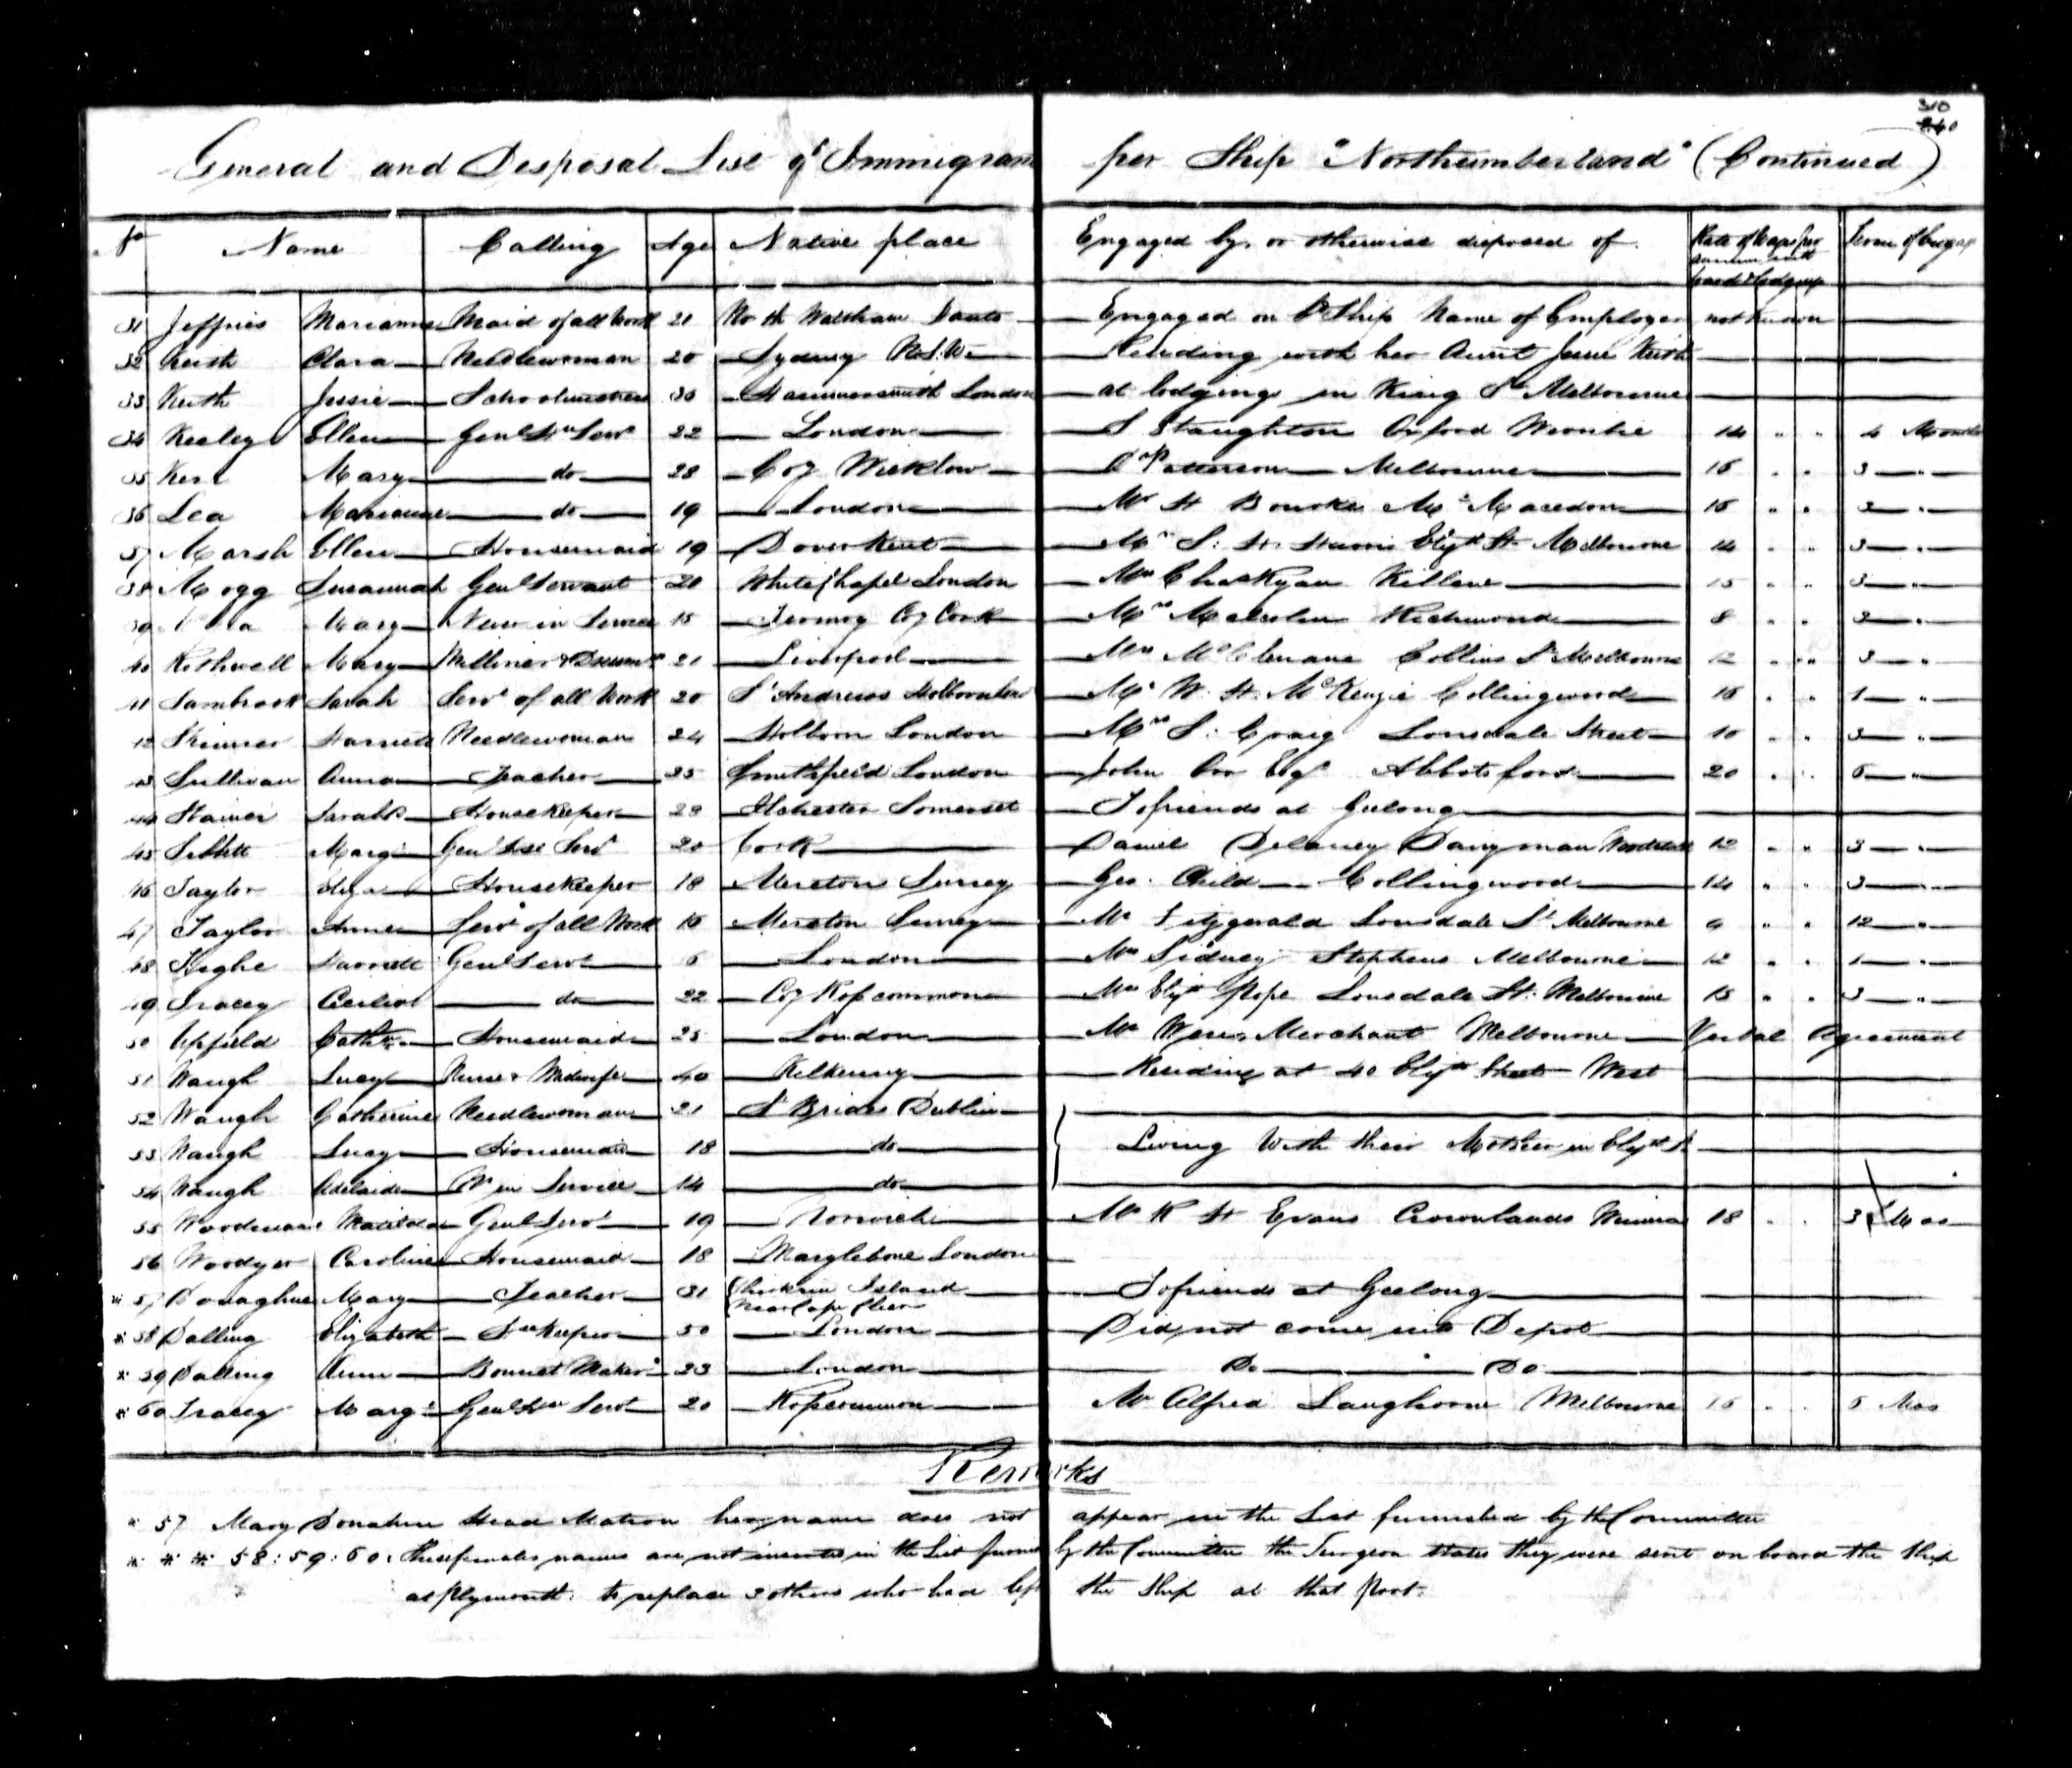 310
240
General and Disposal List of Immigrants per Ship "Northumberland" (Continued)
No Name Calling Age Native place Engaged by, or otherwise disposed of. Rate of Wages per annum with board & lodging Term of Engag
31 Jeffries Marianne Maid of all Work 21 North Waltham Engaged on Bd Ship Name of Employer not known
32 Keith Clara Needlewoman 20 Sydney N.S.W. Residing with her Aunt Jessie Keith
33 Keith Jessie Schoolmistress 30 Hammersmith London at lodgings in King St Melbourne
34 Keeley Ellen Genl Hse Servt 22 London S Staughton Oxford 14 " " 4 Months
35 Mary do 28 Coy Wicklow Patterson Melbourne 16 " " 3 "
36 Lea Marianne do 19 London Mr H Bourke Mt Macedon 16 " " 3 "
37 Marsh Ellen Housemaid 19 Dover Kent S. H. Harris Elizth St Melbourne 14 " " 3 "
38 Mogg Susannah Genl Servant 20 White Chapel London Mr Chas Ryan Killeen 15 " " 3 "
39 Mary Never in Service 15 Fermoy Coy Cork Mrs Malcolm Richmond 8 " " 3 "
40 Rothwell Mary Milliner & Dressmr 21 Liverpool Collins St Melbourne 12 " " 3 "
41 Sambrook Sarah Servt of all Work 20 St Andrews Holborn Lon Mr W. H. McKenzie Collingwood 16 " " 1 "
42 Skinner Harriett Needlewoman 24 Holborn London Mrs S. Craig Lonsdale Street 10 " " 3 "
43 Sullivan Anna Teacher 25 Smithfield London John Orr Esqr Abbotsford 20 " " 6 "
44 Sarah Housekeeper 29 Ilchester Somerset To friends at Geelong
45 Margt Genl Hse Servt 20 Cork Daniel Delaney Dairyman 12 " " 3 "
46 Taylor Eliza Housekeeper 18 Merston Surrey Geo. Child Collingwood 14 " " 3 "
47 Taylor Anne Servt of all Work 16 Merston Surrey Mr Fitzgerald Lonsdale St Melbourne 9 " " 12 "
48 Harriett Genl Servt London Mr Sidney Stephens Melbourne 12 " " 1 "
49 Tracey do 22 Coy Roscommon Mrs Elizth Pope Lonsdale St. Melbourne 15 " " 3 "
50 Upfield Cathne Housemaid 25 London Mr Were Merchant Melbourne Verbal Agreement
51 Waugh Lucy Nurse & Midwife 40 Kilkenny Residing at 40 Elizth Street West
52 Waugh Catherine Needlewoman 21 St Brides Dublin
53 Waugh Lucy Housemaid 18 do Living With their Mother in Elizth St
54 Waugh Adelaide Nr in Service 14 do
55 Woodman Matilda Genl Servt 19 Norwich Mr R H Evans Crownlands 18 " " 3 Mos
56 Woodyer Caroline Housemaid 18 Marylebone London
* 57 Donaghue Mary Teacher 31 Island near Cape Clear To friends at Geelong
* 58 Dalling Elizabeth Hse Keeper 50 London Did not come into Depot
* 59 Dalling Ann Bonnet Maker 23 London Do Do
* 60 Tracey Margt Genl Hse Servt 20 Roscommon Mr Alfred Langhorne Melbourne 16 " " 6 Mos
Remarks
* 57 Mary Donahue Head Matron her name does not appear in the List furnished by the Committee
* * * 58: 59: 60: these females names are not inserted in the List furned by the Committee the Surgeon states they were sent on board the Ship
at Plymouth. to replace 3 others who had left the Ship at that Port.